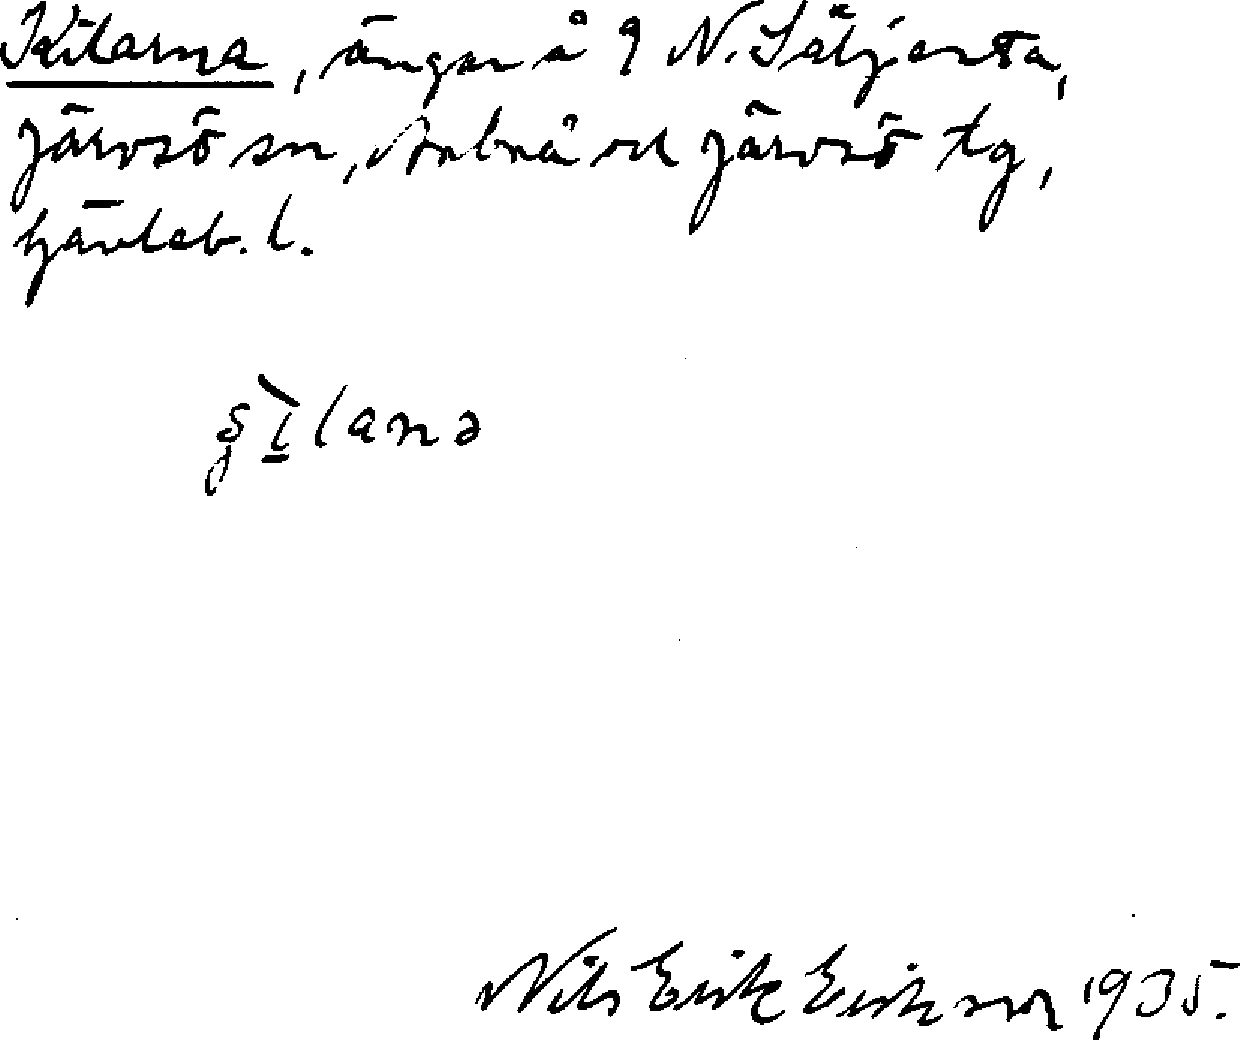 Kilarna, ängar å 9 N. Säljesta,
Järvsö sn, Arbrå och Järvsö tg,
Gävleb. l.
Nils Erik Erikson 1935.